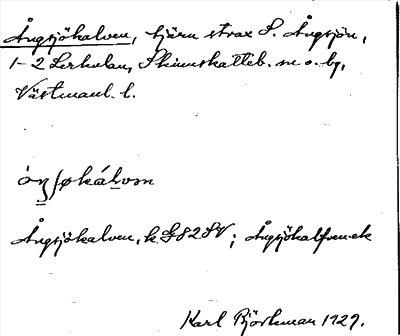 Ångsjökalven, tjärn strax S. Ångsjön,
1-2 Lerkulan, Skinnskatteb. sn o. bg,
Västmanl. l.
Ångsjökalven, k G82SV; Ångsjökalfven ek
Karl Björkman 1929.